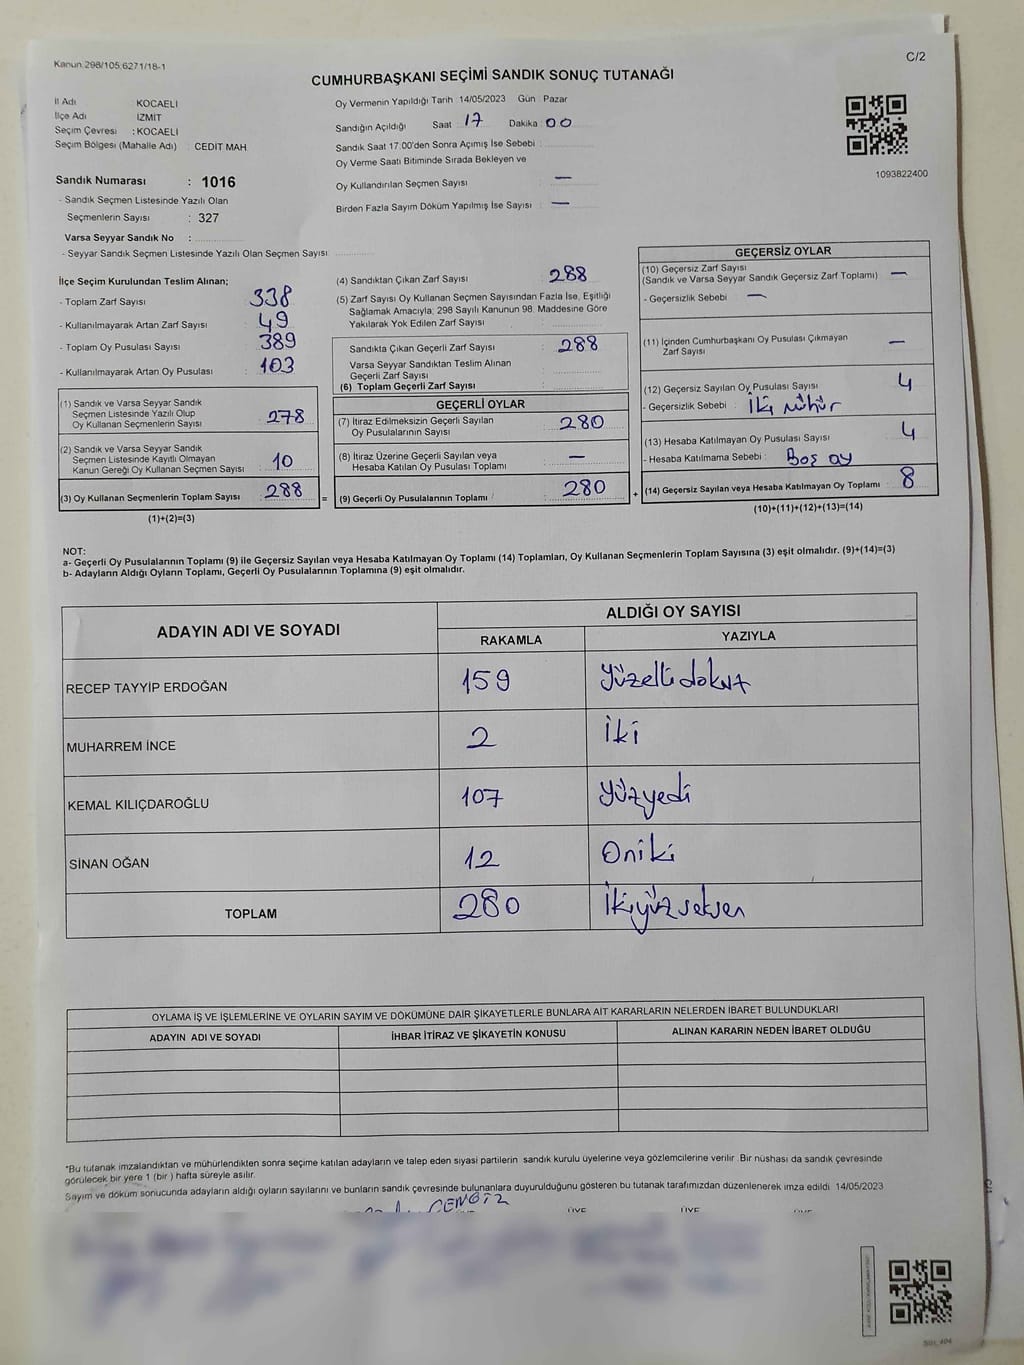 Kanun:298/105,6271/18-1
C/2
CUMHURBAŞKANI SEÇİMİ SANDIK SONUÇ TUTANAĞI
İl Adı KOCAELİ
İlçe Adı İZMİT
Seçim Çevresi : KOCAELİ
Seçim Bölgesi (Mahalle Adı) : CEDİT MAH.
Oy Vermenin Yapıldığı Tarih 14/05/2023 Gün : Pazar
Sandığın Açıldığı Saat : 17 Dakika : 00
Sandık Saat 17:00'den Sonra Açımış İse Sebebi :
Oy Verme Saati Bitiminde Sırada Bekleyen ve
Oy Kullandırılan Seçmen Sayısı : —
Birden Fazla Sayım Döküm Yapılmış İse Sayısı : —
1093822400
Sandık Numarası : 1016
- Sandık Seçmen Listesinde Yazılı Olan
Seçmenlerin Sayısı : 327
Varsa Seyyar Sandık No :
- Seyyar Sandık Seçmen Listesinde Yazılı Olan Seçmen Sayısı:
İlçe Seçim Kurulundan Teslim Alınan;
- Toplam Zarf Sayısı 338
- Kullanılmayarak Artan Zarf Sayısı 49
- Toplam Oy Pusulası Sayısı 389
- Kullanılmayarak Artan Oy Pusulası 103
(1) Sandık ve Varsa Seyyar Sandık
Seçmen Listesinde Yazılı Olup
Oy Kullanan Seçmenlerin Sayısı 278
(2) Sandık ve Varsa Seyyar Sandık
Seçmen Listesinde Kayıtlı Olmayan
Kanun Gereği Oy Kullanan Seçmen Sayısı 10
(3) Oy Kullanan Seçmenlerin Toplam Sayısı 288 =
(1)+(2)=(3)
(4) Sandıktan Çıkan Zarf Sayısı 288
(5) Zarf Sayısı Oy Kullanan Seçmen Sayısından Fazla İse, Eşitliği
Sağlamak Amacıyla; 298 Sayılı Kanunun 98. Maddesine Göre
Yakılarak Yok Edilen Zarf Sayısı
Sandıkta Çıkan Geçerli Zarf Sayısı 288
Varsa Seyyar Sandıktan Teslim Alınan
Geçerli Zarf Sayısı
(6) Toplam Geçerli Zarf Sayısı
GEÇERLİ OYLAR
(7) İtiraz Edilmeksizin Geçerli Sayılan
Oy Pusulalarının Sayısı 280
(8) İtiraz Üzerine Geçerli Sayılan veya
Hesaba Katılan Oy Pusulası Toplamı —
(9) Geçerli Oy Pusulalarının Toplamı 280 +
GEÇERSİZ OYLAR
(10) Geçersiz Zarf Sayısı
(Sandık ve Varsa Seyyar Sandık Geçersiz Zarf Toplamı) —
- Geçersizlik Sebebi : —
(11) İçinden Cumhurbaşkanı Oy Pusulası Çıkmayan
Zarf Sayısı —
(12) Geçersiz Sayılan Oy Pusulası Sayısı 4
- Geçersizlik Sebebi : İki mühür
(13) Hesaba Katılmayan Oy Pusulası Sayısı 4
- Hesaba Katılmama Sebebi : Boş oy
(14) Geçersiz Sayılan veya Hesaba Katılmayan Oy Toplamı : 8
(10)+(11)+(12)+(13)=(14)
NOT:
a- Geçerli Oy Pusulalarının Toplamı (9) ile Geçersiz Sayılan veya Hesaba Katılmayan Oy Toplamı (14) Toplamları, Oy Kullanan Seçmenlerin Toplam Sayısına (3) eşit olmalıdır. (9)+(14)=(3)
b- Adayların Aldığı Oyların Toplamı, Geçerli Oy Pusulalarının Toplamına (9) eşit olmalıdır.
ADAYIN ADI VE SOYADI
ALDIĞI OY SAYISI
RAKAMLA YAZIYLA
RECEP TAYYİP ERDOĞAN 159 Yüzelli dokuz
MUHARREM İNCE 2 İki
KEMAL KILIÇDAROĞLU 107 Yüzyedi
SİNAN OĞAN 12 Oniki
TOPLAM 280 İkiyüz seksen
OYLAMA İŞ VE İŞLEMLERİNE VE OYLARIN SAYIM VE DÖKÜMÜNE DAİR ŞİKAYETLERLE BUNLARA AİT KARARLARIN NELERDEN İBARET BULUNDUKLARI
ADAYIN ADI VE SOYADI İHBAR İTİRAZ VE ŞİKAYETİN KONUSU ALINAN KARARIN NEDEN İBARET OLDUĞU
*Bu tutanak imzalandıktan ve mühürlendikten sonra seçime katılan adayların ve talep eden siyasi partilerin sandık kurulu üyelerine veya gözlemcilerine verilir. Bir nüshası da sandık çevresinde
görülecek bir yere 1 (bir ) hafta süreyle asılır.
Sayım ve döküm sonucunda adayların aldığı oyların sayılarını ve bunların sandık çevresinde bulunanlara duyurulduğunu gösteren bu tutanak tarafımızdan düzenlenerek imza edildi. 14/05/2023
CENGİZ
ÜYE ÜYE